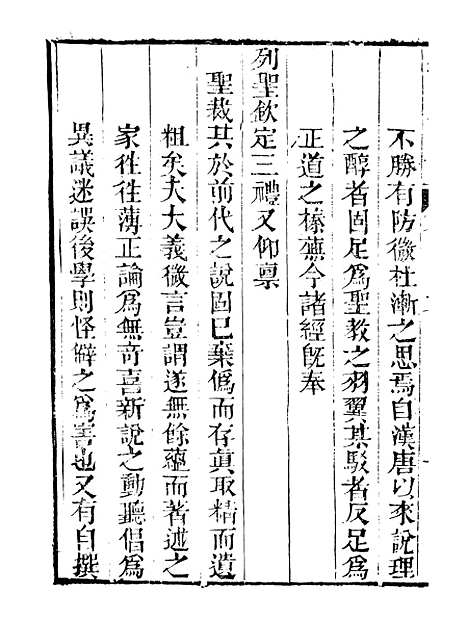 不勝有防微杜漸之思焉自漢唐以來說理
之醇者固足爲聖教之羽翼其駁者反足爲
正道之榛蕪今諸經旣奉
列聖欽定三禮又仰禀
聖裁其於前代之說固已棄僞而存眞取精而遺
粗矣夫大義微言豈謂遂無餘蘊而著述之
家徃徃薄正論爲無奇喜新說之動聽倡爲
異議迷誤後學則怪僻之爲害也又有自撰